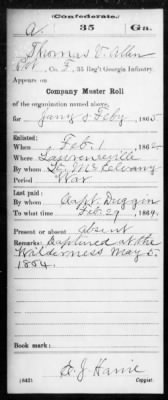 Confederate.
a 35 Ga.
Thomas V. Allen
Pvt., Co. F, 35 Reg't Georgia Infantry.
Appears on
Company Muster Roll
of the organization named above,
for Jany & Feby, 1865.
Enlisted:
When Feb. 1, 1862.
Where Lawrenceville
By whom
Period War
Last paid:
By whom Capt. Duggan
To what time Feb. 29, 1864.
Present or absent Absent
Remarks: Captured at the
Wilderness May 5.
1864.
(642) Copyist.